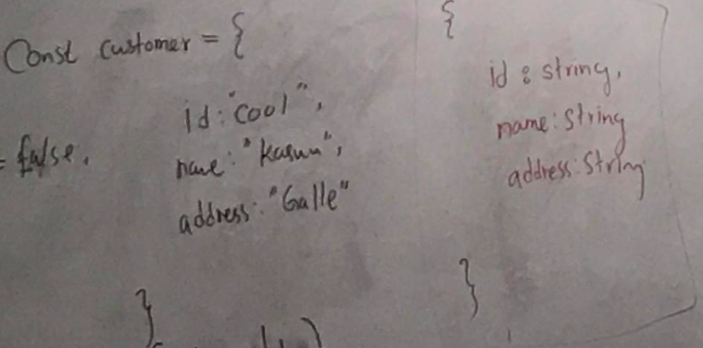 Const customer = {
id: "Cool",
= false.
name: "Kasun",
address: "Galle"
}
{
id : string,
name: String
address: String
}